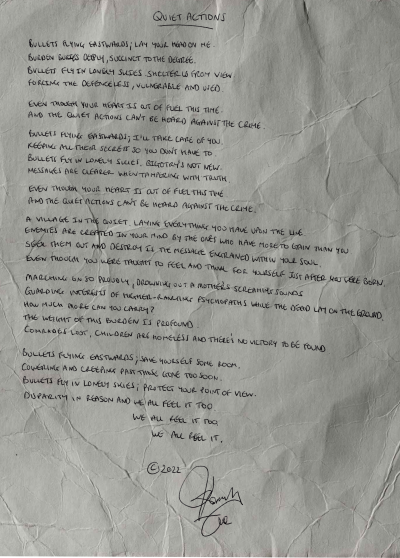 QUIET ACTIONS
BULLETS FLYING EASTWARDS; LAY YOUR HEAD ON ME.
BURDEN BURIES DEEPLY, SUCCINCT TO THE DEGREE.
BULLETS FLY IN LONELY SKIES SHELTERED FROM VIEW.
FORCING THE DEFENCELESS, VULNERABLE AND USED.
EVEN THOUGH YOUR HEART IS OUT OF FUEL THIS TIME.
AND THE QUIET ACTIONS CAN'T BE HEARD AGAINST THE CRIME.
BULLETS FLYING EASTWARDS; I'LL TAKE CARE OF YOU.
KEEPING ALL THEIR SECRETS SO YOU DON'T HAVE TO.
BULLETS FLY IN LONELY SKIES. BIGOTRY'S NOT NEW.
MESSAGES ARE CLEARER WHEN TAMPERING WITH TRUTH.
EVEN THOUGH YOUR HEART IS OUT OF FUEL THIS TIME
AND THE QUIET ACTIONS CAN'T BE HEARD AGAINST THE CRIME.
A VILLAGE IN THE QUIET LAYING EVERYTHING YOU HAVE UPON THE LINE
ENEMIES ARE CREATED IN YOUR MIND BY THE ONES WHO HAVE MORE TO GAIN THAN YOU
SEEK THEM OUT AND DESTROY IS THE MESSAGE ENGRAVED WITHIN YOUR SOUL.
EVEN THOUGH YOU WERE TAUGHT TO FEEL AND THINK FOR YOURSELF JUST AFTER YOU WERE BORN.
MARCHING ON SO PROUDLY, DROWNING OUT A MOTHER'S SCREAMING SOUNDS
GUARDING INTERESTS OF HIGHER-RANKING PSYCHOPATHS WHILE THE DEAD LAY ON THE GROUND.
HOW MUCH MORE CAN YOU CARRY?
THE WEIGHT OF THIS BURDEN IS PROFOUND.
COMRADES LOST, CHILDREN ARE HOMELESS AND THERE'S NO VICTORY TO BE FOUND
BULLETS FLYING EASTWARDS; SAVE YOURSELF SOME ROOM.
COWERING AND CREEPING PAST THOSE GONE TOO SOON.
BULLETS FLY IN LONELY SKIES; PROTECT YOUR POINT OF VIEW.
DISPARITY IN REASON AND WE ALL FEEL IT TOO
WE ALL FEEL IT TOO,
WE ALL FEEL IT.
©2022